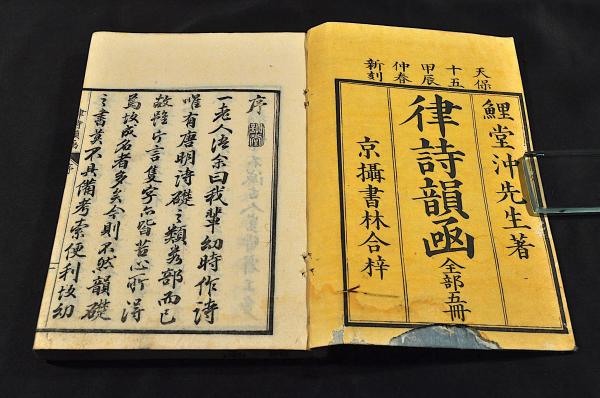 天保
十五
甲辰
仲春
新刻
鯉堂沖先生著
律詩韻函 全部五冊
京攝書林合梓
序
一老人語余曰我輩幼時作詩
唯有唐明詩礎之類若部而已
故雖片言隻字皆苦心所得
為故成名者多矣今則不然韻礎
之書莫不具備考索便利故幼